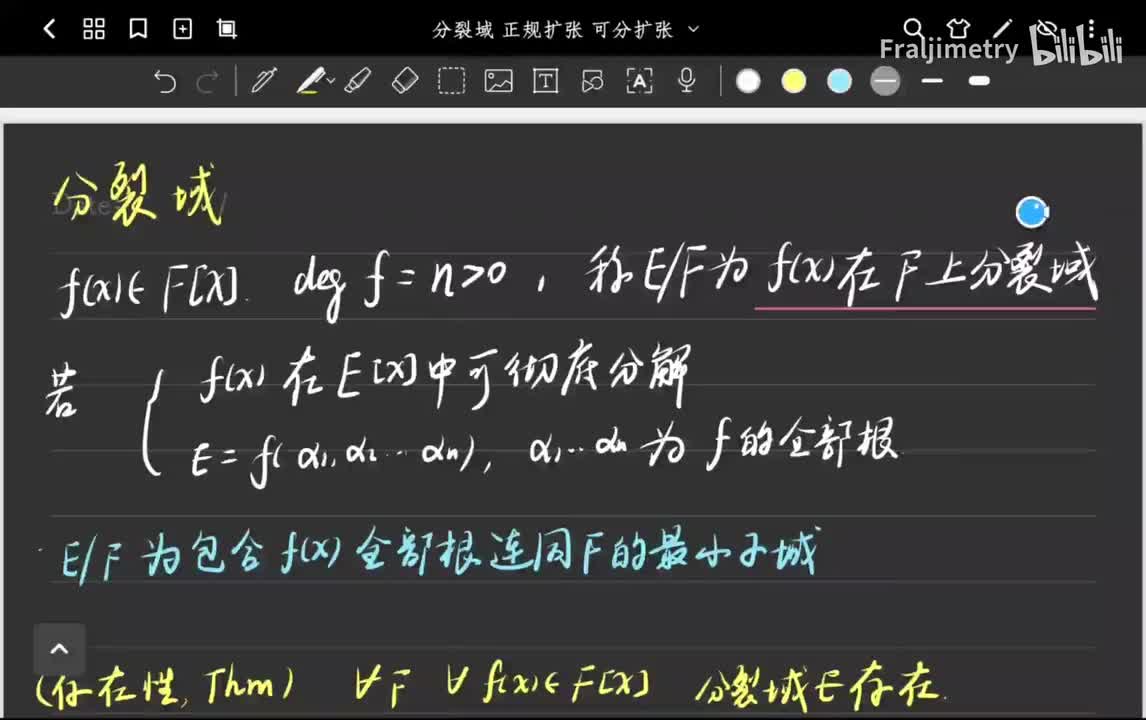 分裂域 正规扩张 可分扩张
Fraljimetry bilibili
分裂域
f(x)∈F[x]. deg f=n>0, 称E/F为f(x)在F上分裂域
若 f(x)在E[x]中可彻底分解
E=f(α₁,α₂…αn), α₁…αn为f的全部根
E/F为包含f(x)全部根连同F的最小子域
(存在性, Thm) ∀F ∀f(x)∈F[x] 分裂域E存在.